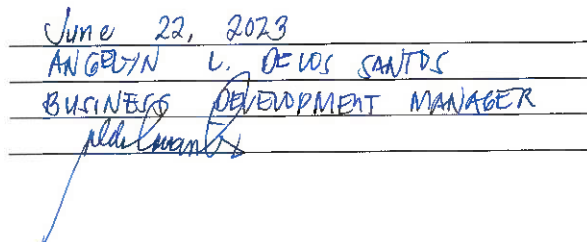 June 22, 2023
ANGELYN L. DE LOS SANTOS
BUSINESS DEVELOPMENT MANAGER